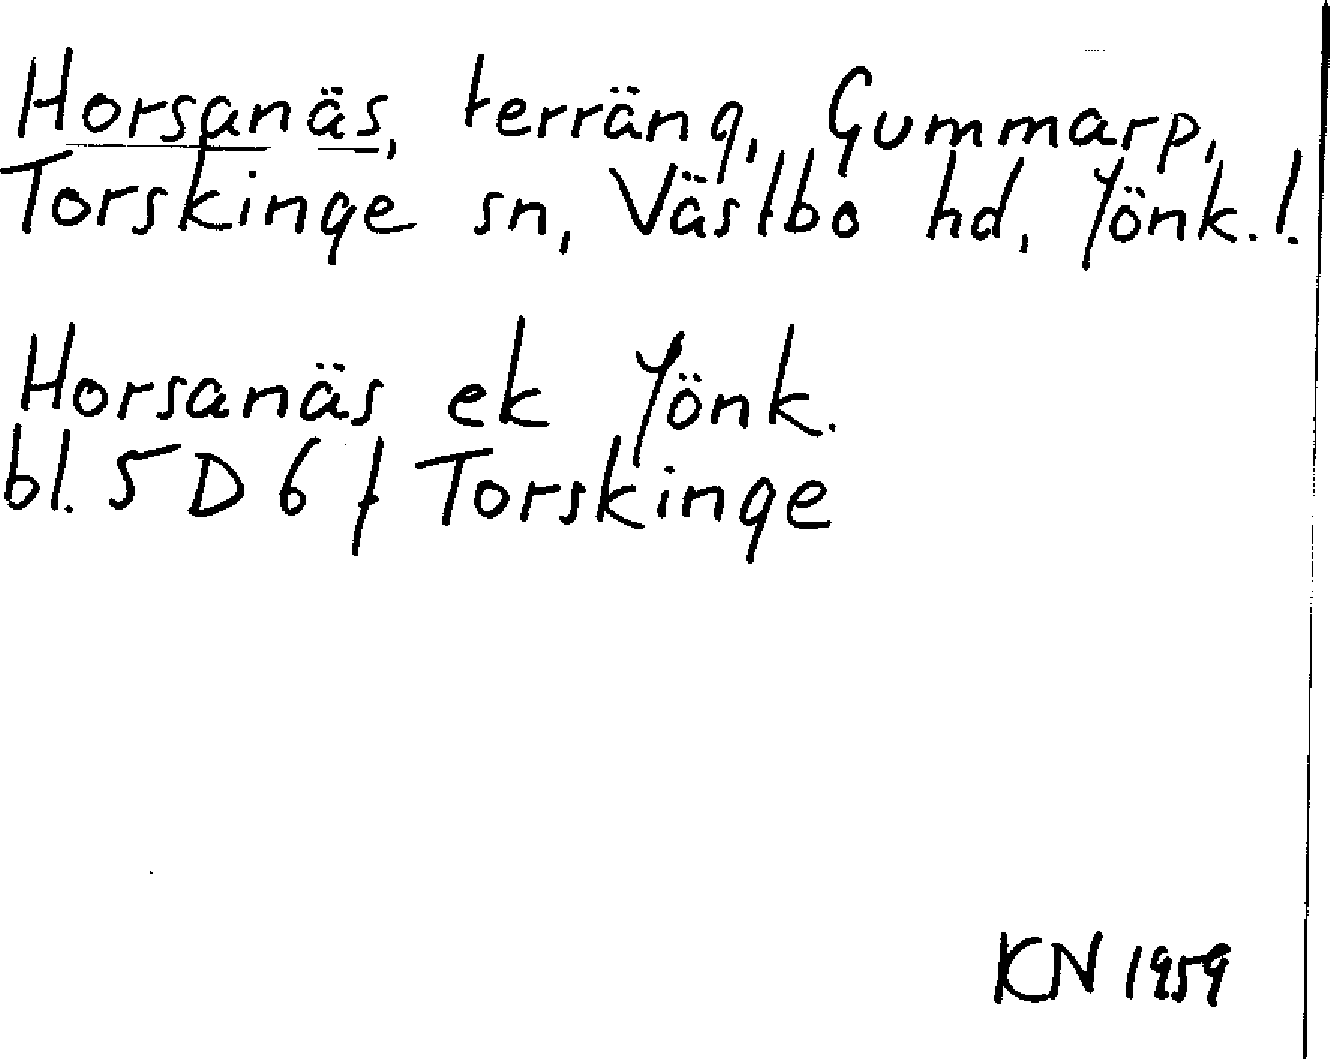 Horsanäs, terräng, Gummarp,
Torskinge sn, Västbo hd, Jönk. l.
Horsanäs ek Jönk.
bl. 5 D 6 f Torskinge
KN 1959